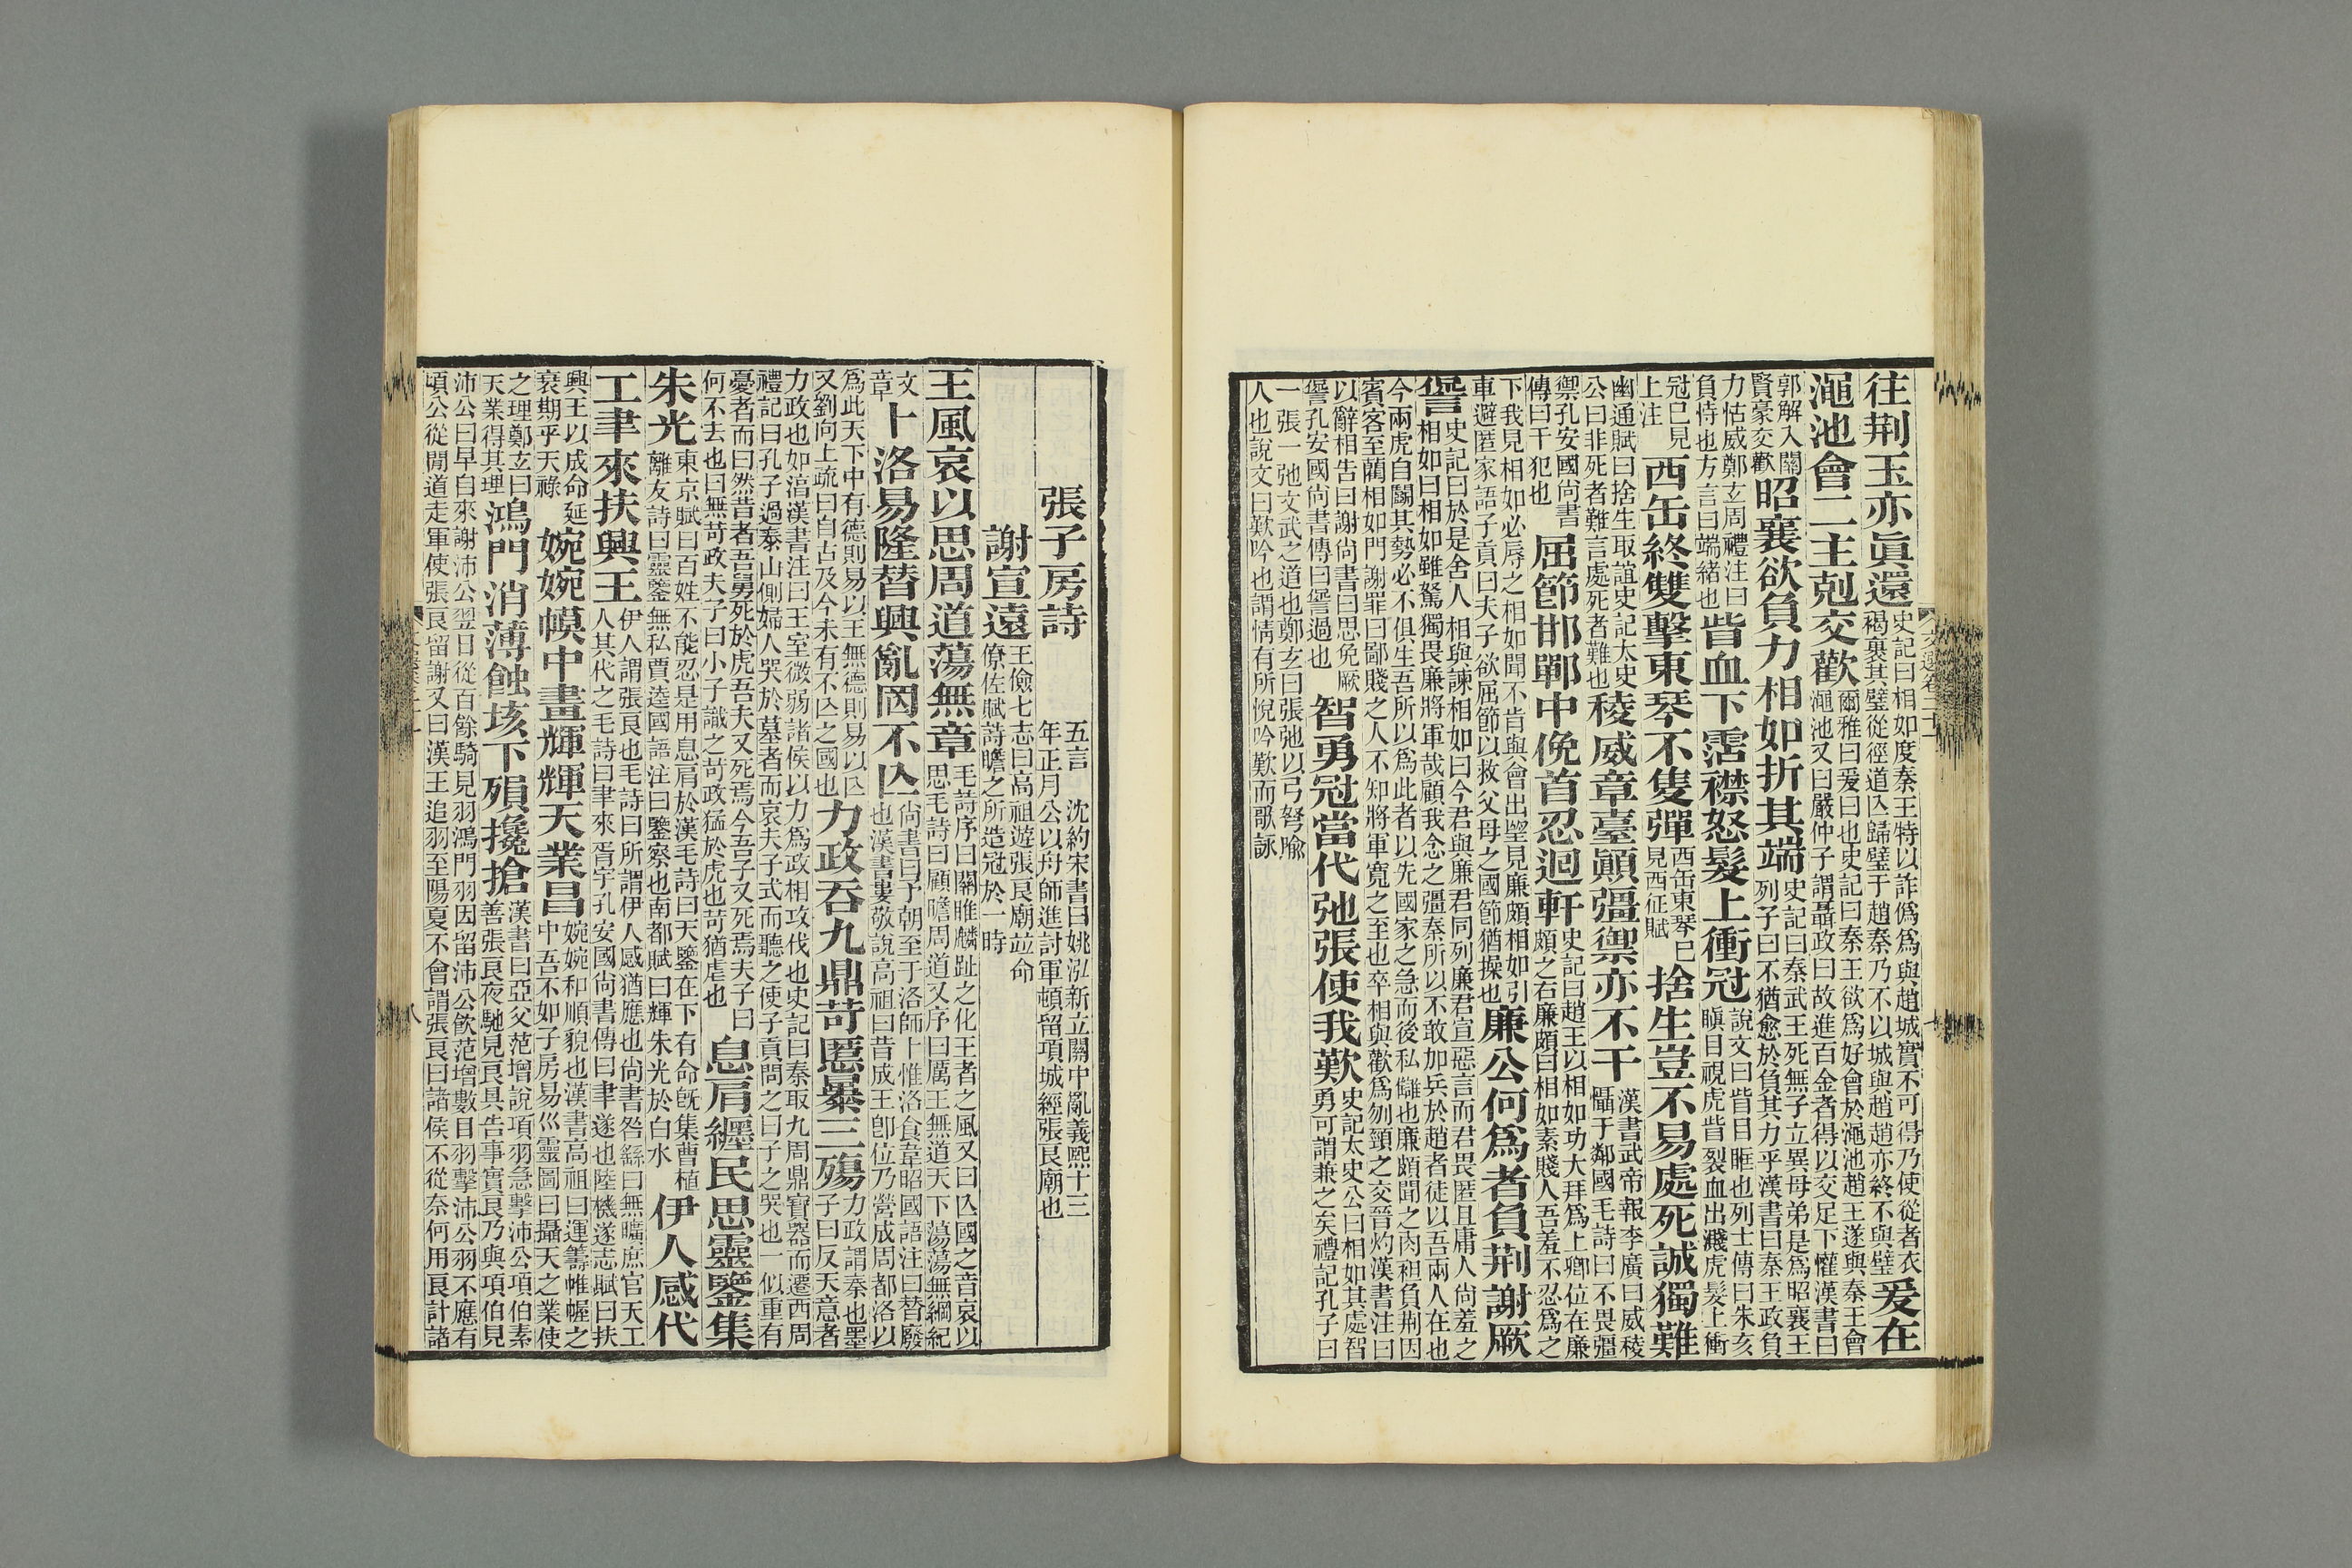 往荆玉亦眞還史記曰相如度秦王特以詐僞爲與趙城實不可得乃使從者衣褐裹其璧從徑道亾歸璧于趙秦乃不以城與趙趙亦終不與璧爰在
澠池會二主尅交歡爾雅曰爰曰也史記曰秦王欲爲好會於澠池趙王遂與秦王會澠池又曰嚴仲子謂聶政曰故進百金者得以交足下懽漢書曰
郭解入關賢豪交歡昭襄欲負力相如折其端史記曰秦武王死無子立異母弟是爲昭襄王列子曰不猶愈於負其力乎漢書曰秦王政負
力怙威鄭玄周禮注曰負恃也方言曰端緒也眥血下霑襟怒髮上衝冠說文曰眥目匡也列士傳曰朱亥瞋目視虎眥裂血出濺虎髮上衝
冠已見上注西缶終雙擊東琴不隻彈西缶東琴已見西征賦捨生豈不易處死誠獨難
幽通賦曰捨生取誼史記太史公曰非死者難言處死者難也稜威章臺顚彊禦亦不干漢書武帝報李廣曰威稜懾于鄰國毛詩曰不畏彊
禦孔安國尙書傳曰干犯也屈節邯鄲中俛首忍迴軒史記曰趙王以相如功大拜爲上卿位在廉頗之右廉頗曰相如素賤人吾羞不忍爲之
下我見相如必辱之相如聞不肯與會出望見廉頗相如引車避匿家語子貢曰夫子欲屈節以救父母之國節猶操也廉公何爲者負荆謝厥
諐史記曰於是舍人相與諫相如曰今君與廉君同列廉君宣惡言而君畏匿且庸人尙羞之相如曰相如雖駑獨畏廉將軍哉顧我念之彊秦所以不敢加兵於趙者徒以吾兩人在也
今兩虎自鬭其勢必不俱生吾所以爲此者以先國家之急而後私讎也廉頗聞之肉袒負荆因賓客至藺相如門謝罪曰鄙賤之人不知將軍寬之至也卒相與歡爲刎頸之交晉灼漢書注曰
以辭相告曰謝尙書曰思免厥諐孔安國尙書傳曰諐過也智勇冠當代弛張使我歎史記太史公曰相如其處智勇可謂兼之矣禮記孔子曰
一張一弛文武之道也鄭玄曰張弛以弓弩喻人也說文曰歎吟也謂情有所悅吟歎而歌詠
張子房詩五言沈約宋書曰姚泓新立關中亂義熙十三年正月公以舟師進討軍頓留項城經張良廟也
謝宣遠王儉七志曰高祖遊張良廟並命僚佐賦詩瞻之所造冠於一時
王風哀以思周道蕩無章毛詩序曰關雎麟趾之化王者之風又曰亾國之音哀以思毛詩曰顧瞻周道又序曰厲王無道天下蕩蕩無綱紀
文章卜洛易隆替興亂罔不亾尙書曰予朝至于洛師卜惟洛食韋昭國語注曰替廢也漢書婁敬說高祖曰昔成王卽位乃營成周都洛以
爲此天下中有德則易以王無德則易以亾又劉向上疏曰自古及今未有不亾之國也力政吞九鼎苛慝暴三殤力政謂秦也墨子曰反天意者
力政也如湻漢書注曰王室微弱諸侯以力爲政相攻伐也史記曰秦取九周鼎寶器而遷西周禮記曰孔子過泰山側婦人哭於墓者而哀夫子式而聽之使子貢問之曰子之哭也一似重有
憂者而曰然昔者吾舅死於虎吾夫又死焉今吾子又死焉夫子曰何不去也曰無苛政夫子曰小子識之苛政猛於虎也苛猶虐也息肩纏民思靈鑒集
朱光東京賦曰百姓不能忍是用息肩於漢毛詩曰天鑒在下有命旣集曹植離友詩曰靈鑒無私賈逵國語注曰鑒察也南都賦曰輝朱光於白水伊人感代
工聿來扶興王伊人謂張良也毛詩曰所謂伊人感猶應也尙書咎繇曰無曠庶官天工人其代之毛詩曰聿來胥宇孔安國尙書傳曰聿遂也陸機遂志賦曰扶
興王以成命延衰期乎天祿婉婉幙中畫輝輝天業昌婉婉和順貌也漢書高祖曰運籌帷幄之中吾不如子房易巛靈圖曰攝天之業使
之理鄭玄曰天業得其理鴻門消薄蝕垓下殞攙搶漢書曰亞父范增說項羽急擊沛公項伯素善張良夜馳見良具告事實良乃與項伯見
沛公曰早自來謝沛公翌日從百餘騎見羽鴻門羽因留沛公飲范增數目羽擊沛公羽不應有頃公從閒道走軍使張良留謝又曰漢王追羽至陽夏不會謂張良曰諸侯不從奈何用良計諸
八